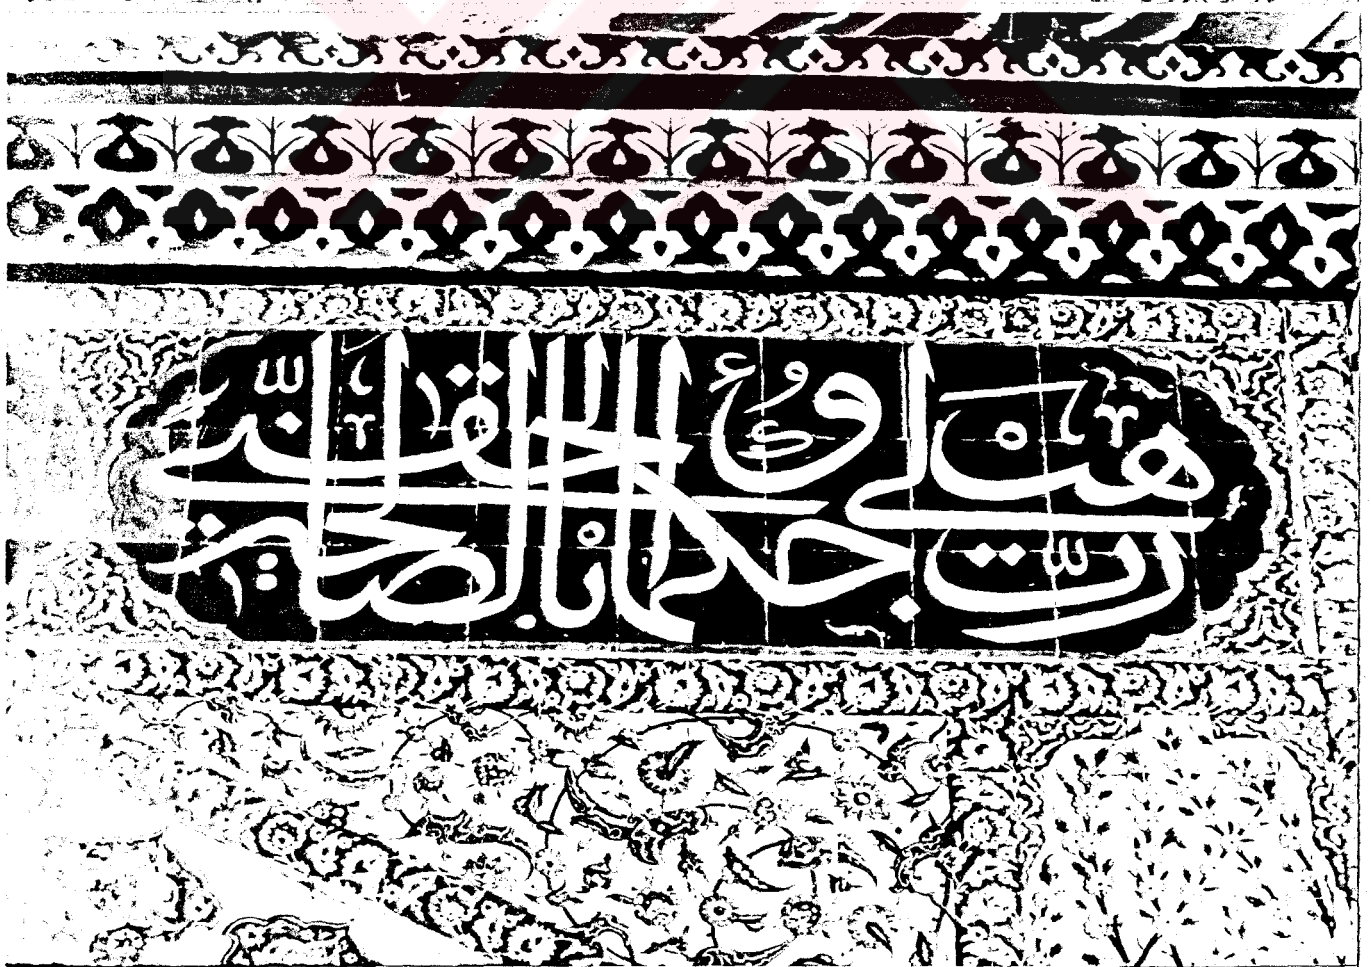 رَبِّ هَبْ لى حكما وألحقنى بالصلحين